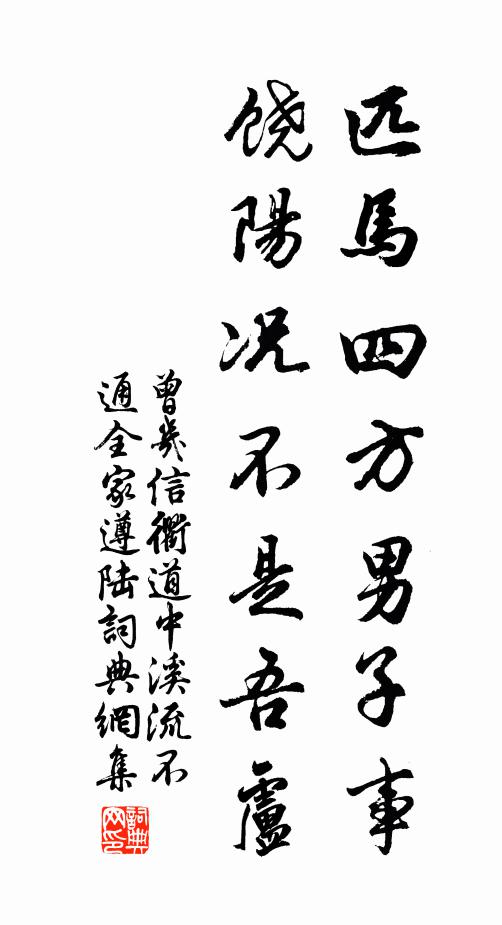 匹馬四方男子事
饒陽况不是吾廬
曾幾信衢道中溪流不
通全家遵陸詞典網集
詞典网印